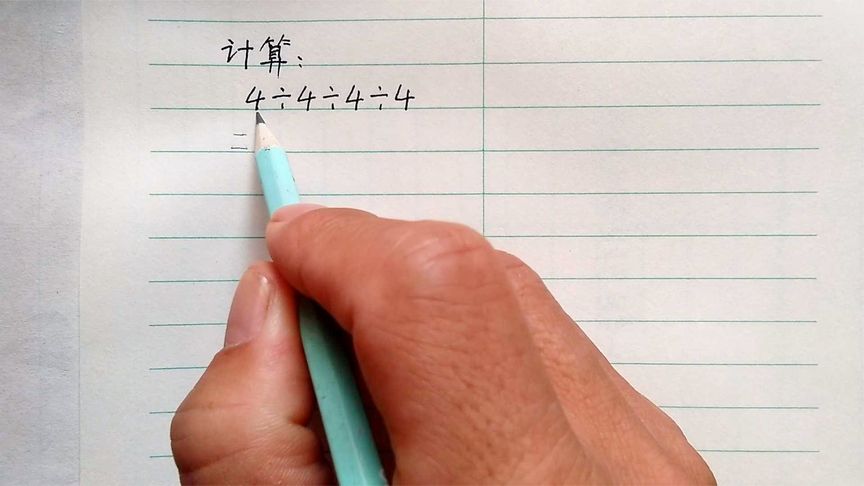 计算：
4÷4÷4÷4
=